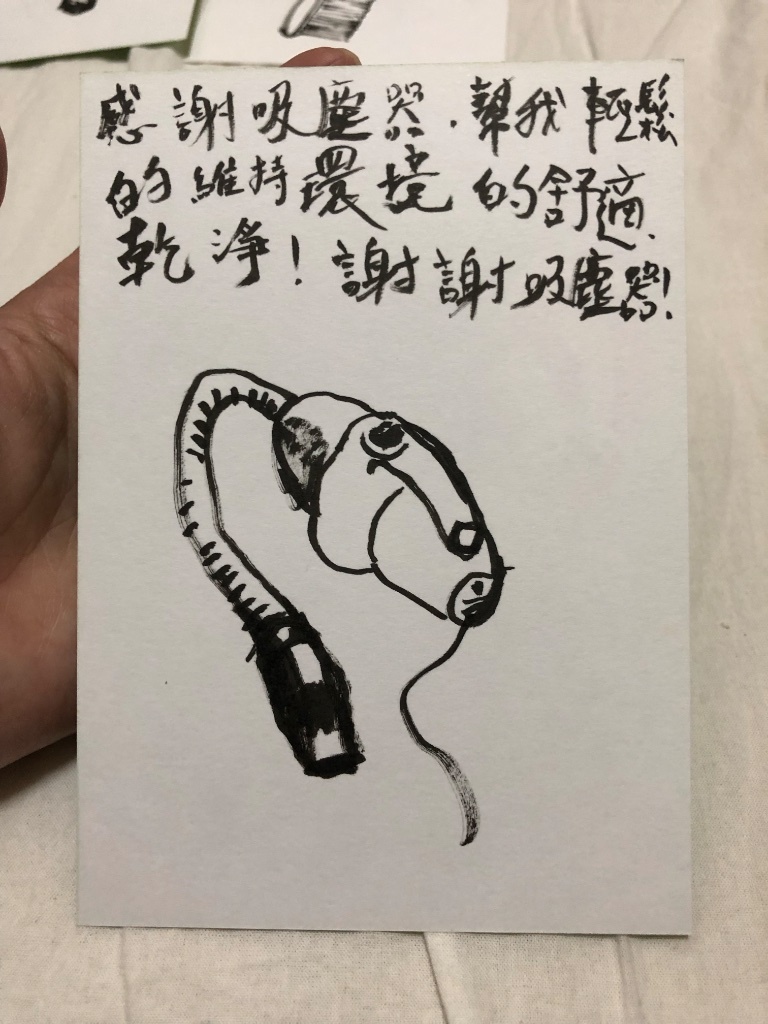 感謝吸塵器.幫我輕鬆
的維持環境的舒適.
乾淨!謝謝吸塵器!